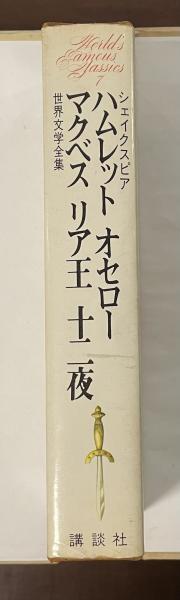 World's
Famous
Classics
7
シェイクスピア
ハムレット オセロー
マクベス リア王 十二夜
世界文学全集
講談社